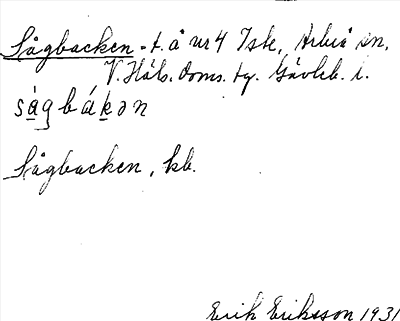 Sågbacken - t. å nr 4 Iste, Arbrå sn,
V. Häls. doms. tg. Gävleb. l.
ságbákən
Sågbacken, kb.
Erik Eriksson 1931